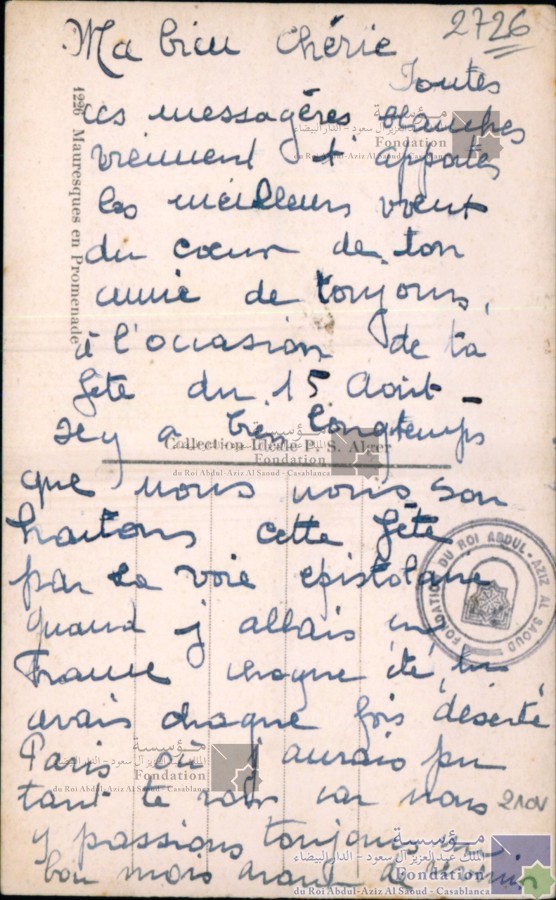 2726
Ma bien Chérie
Toutes
ces messagères blanches
viennent t'apporter
les meilleurs vœux
du cœur de ton
amie de toujours,
à l'occasion de ta
fête du 15 Août
Il y a bien longtemps
que nous nous sou
haitons cette fête
par la voie épistolaire
quand j'allais en
France chaque été, tu
avais chaque fois déserté
Paris où j'aurais pu
tant te voir car nous
y passions toujours un
bon mois avant de
1226 Mauresques en Promenade
Collection Idéale P. S. Alger
FONDATION DU ROI ABDUL-AZIZ AL SAOUD
مؤسسة
الملك عبد العزيز آل سعود - الدار البيضاء
Fondation
du Roi Abdul-Aziz Al Saoud - Casablanca